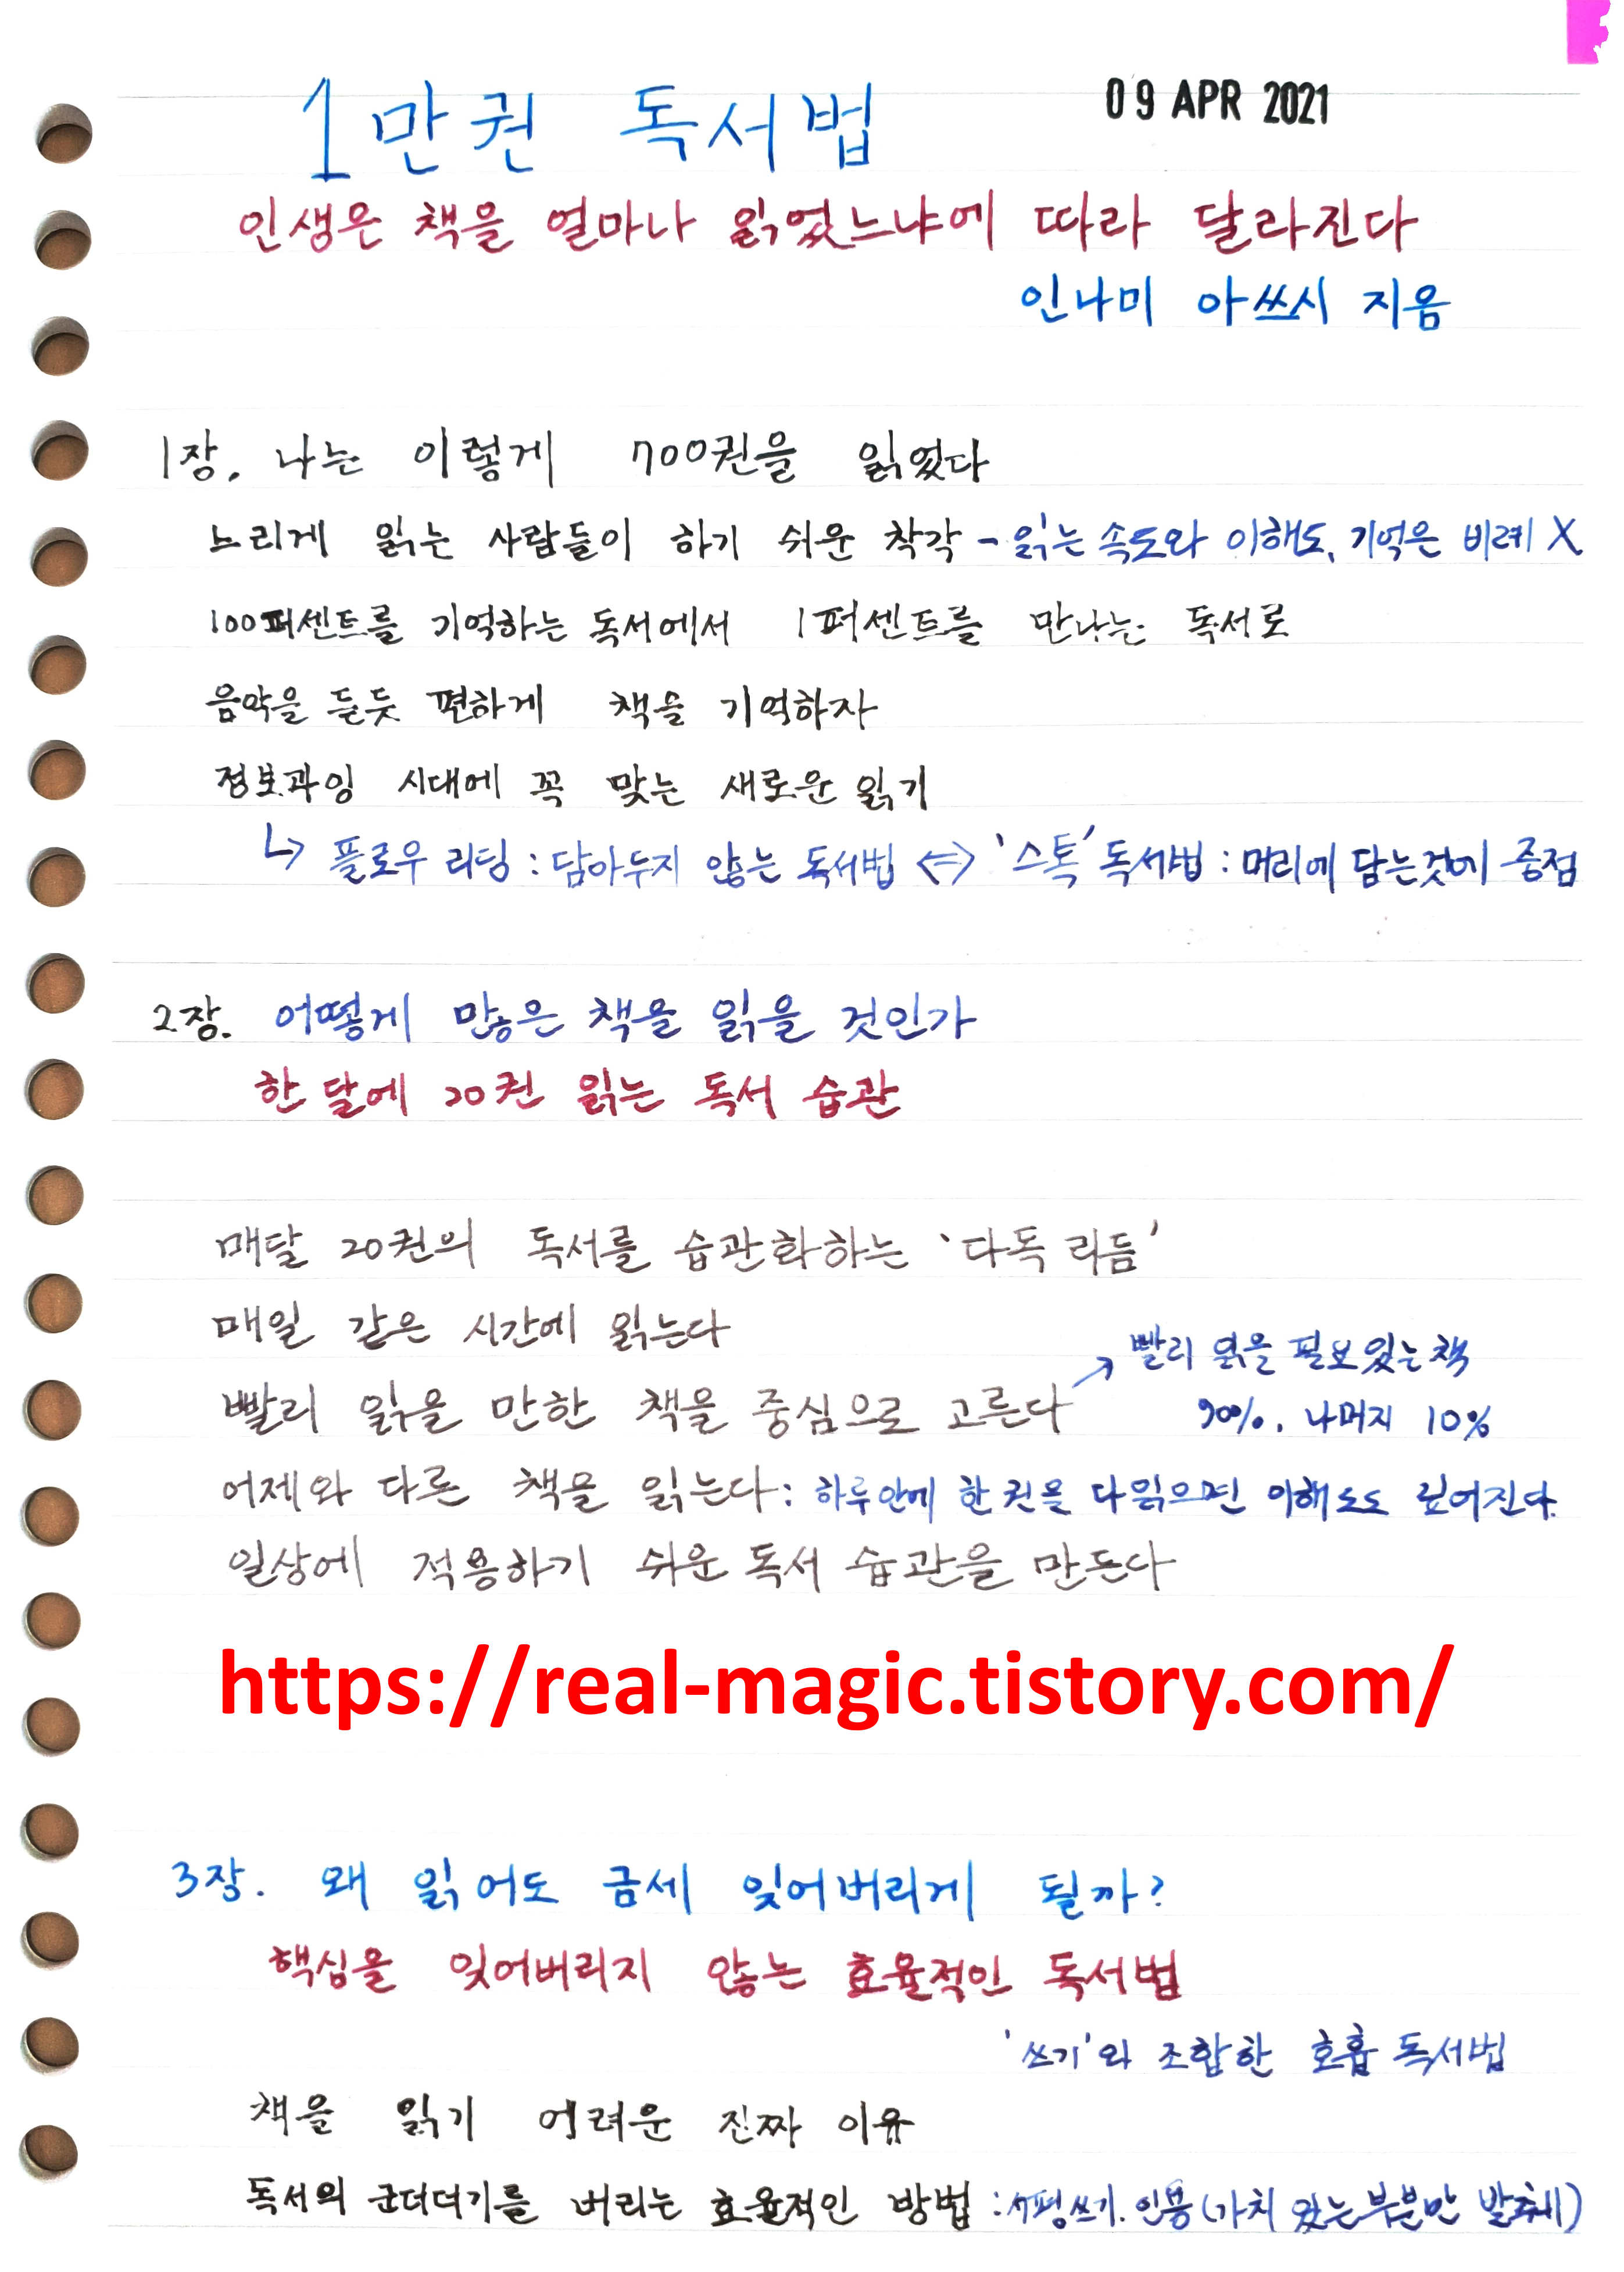 09 APR 2021
1만권 독서법
인생은 책을 얼마나 읽었느냐에 따라 달라진다
인나미 아쓰시 지음
1장. 나는 이렇게 700권을 읽었다
느리게 읽는 사람들이 하기 쉬운 착각 - 읽는 속도와 이해도, 기억은 비례 X
100퍼센트를 기억하는 독서에서 1퍼센트를 만나는 독서로
음악을 듣듯 편하게 책을 기억하자
정보과잉 시대에 꼭 맞는 새로운 읽기
↳ 플로우 리딩 : 담아두지 않는 독서법 ⇔ '스톡' 독서법 : 머리에 담는것에 중점
2장. 어떻게 많은 책을 읽을 것인가
한 달에 20권 읽는 독서 습관
매달 20권의 독서를 습관화하는 '다독 리듬'
매일 같은 시간에 읽는다
빨리 읽을 만한 책을 중심으로 고른다 ↗ 빨리 읽을 필요있는 책
90%. 나머지 10%
어제와 다른 책을 읽는다 : 하루안에 한 권을 다읽으면 이해도도 깊어진다.
일상에 적용하기 쉬운 독서 습관을 만든다
https://real-magic.tistory.com/
3장. 왜 읽어도 금세 잊어버리게 될까?
핵심을 잊어버리지 않는 효율적인 독서법
'쓰기'와 조합한 호흡 독서법
책을 읽기 어려운 진짜 이유
독서의 군더더기를 버리는 효율적인 방법 : 서평쓰기. 인용 (가치 있는 부분만 발췌)